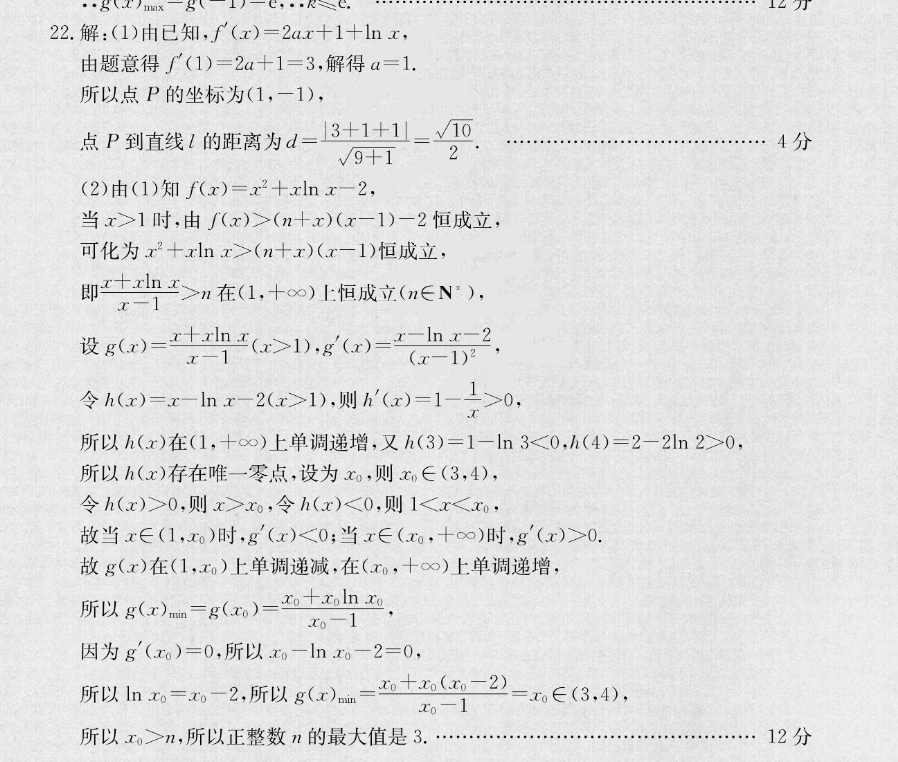 ∴g(x)max=g(-1)=e,∴k≤e. …………………………………………………… 12分
22.解:(1)由已知,f′(x)=2ax+1+ln x,
由题意得 f′(1)=2a+1=3,解得 a=1.
所以点 P 的坐标为(1,-1),
点 P 到直线 l 的距离为 d=|3+1+1|/√(9+1)=√10/2. ………………………………… 4分
(2)由(1)知 f(x)=x²+xln x-2,
当 x>1 时,由 f(x)>(n+x)(x-1)-2 恒成立,
可化为 x²+xln x>(n+x)(x-1)恒成立,
即(x+xln x)/(x-1)>n 在(1,+∞)上恒成立(n∈N*),
设 g(x)=(x+xln x)/(x-1)(x>1),g′(x)=(x-ln x-2)/(x-1)²,
令 h(x)=x-ln x-2(x>1),则 h′(x)=1-1/x>0,
所以 h(x)在(1,+∞)上单调递增,又 h(3)=1-ln 3<0,h(4)=2-2ln 2>0,
所以 h(x)存在唯一零点,设为 x₀,则 x₀∈(3,4),
令 h(x)>0,则 x>x₀,令 h(x)<0,则 1<x<x₀,
故当 x∈(1,x₀)时,g′(x)<0;当 x∈(x₀,+∞)时,g′(x)>0.
故 g(x)在(1,x₀)上单调递减,在(x₀,+∞)上单调递增,
所以 g(x)min=g(x₀)=(x₀+x₀ln x₀)/(x₀-1),
因为 g′(x₀)=0,所以 x₀-ln x₀-2=0,
所以 ln x₀=x₀-2,所以 g(x)min=(x₀+x₀(x₀-2))/(x₀-1)=x₀∈(3,4),
所以 x₀>n,所以正整数 n 的最大值是 3. ………………………………………… 12分